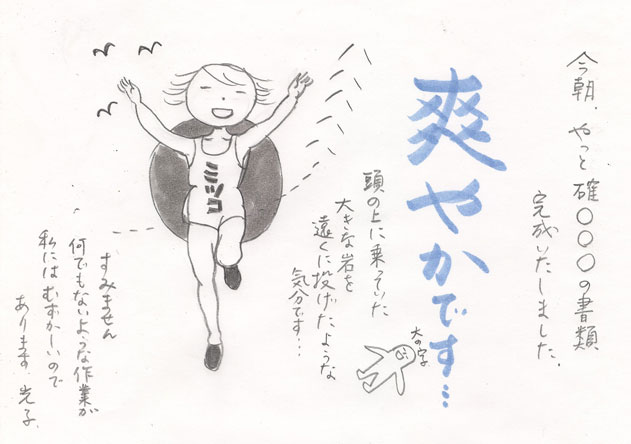 今朝、やっと確〇〇〇の書類
完成いたしました。
爽やかです…
頭の上に乗っていた
大きな岩を
遠くに投げたような
気分です…
大の字
ミツコ
すみません
何でもないような作業が
私にはむずかしいので
あります。光子